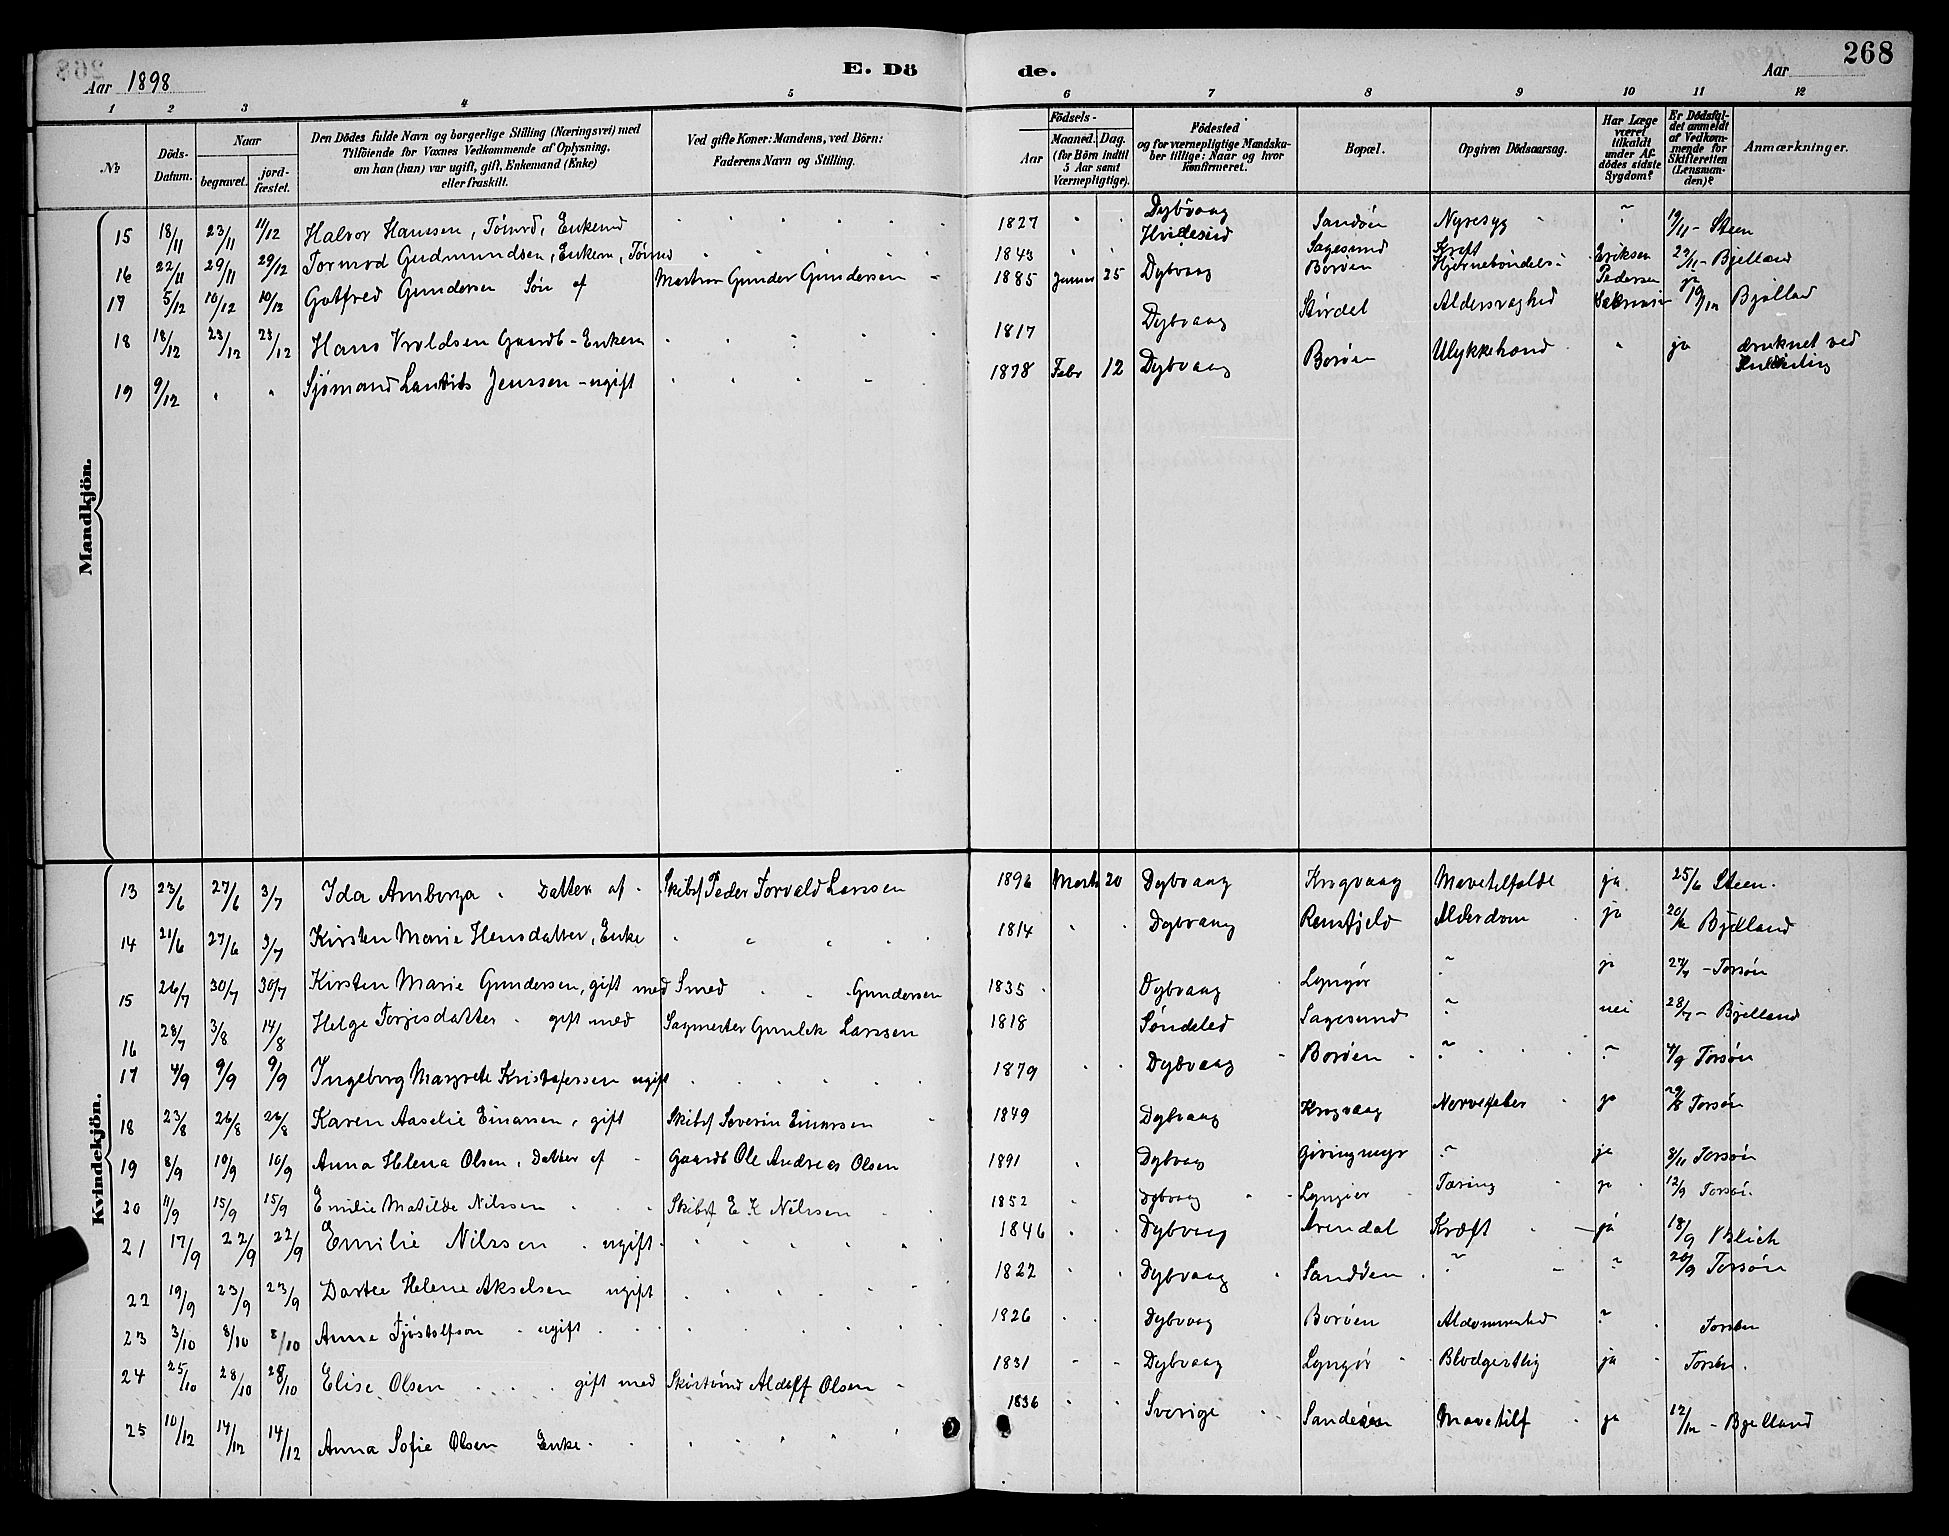 268
Aar 1898
E. Dö de.
Aar
1 2 3 4 5 6 7 8 9 10 11 12
No
Döds-Datum.
Naar
begravet.
jord-fæstet.
Den Dödes fulde Navn og borgerlige Stilling (Næringsvei) med
Tilföiende for Voxnes Vedkommende af Oplysning,
om han (hun) var ugift, gift, Enkemand (Enke)
eller fraskilt.
Ved gifte Koner: Mandens, ved Börn:
Faderens Navn og Stilling.
Födsels-
Aar
Maaned. Dag.
(for Börn indtil 5 Aar samt Værnepligtige).
Födested
og for værnepligtige Mandskaber tillige: Naar og hvor konfirmeret.
Bopæl.
Opgiven Dödsaarsag.
Har Læge været tilkaldt under Afdödes sidste Sygdom?
Er Dödsfaldet anmeldt af Vedkommende for Skifteretten (Lensmanden)?
Anmærkninger.
Mandkjön.
15 18/11 23/11 11/12 Halvor Hansen, Tømrd, Enkemd 1827 Dybvaag Sandøen Nyresyg ~ 19/11 - Steen
16 22/11 29/11 29/12 Tormod Gudmundsen, Enkem, Tømrd 1843 Hvideseid Sagesund Kræft Eriksen 22/11 - Bjelland
17 5/12 10/12 10/12 Gotfred Gundersen Søn af Gunder Gundersen 1885 Januar 25 Dybvaag Borøen Pedersen ja
18 18/12 23/12 23/12 Hans Vroldsen Gaardb - Enkem 1817 Dybvaag Størdal Aldersvaghed 19/12 Bjelland
19 9/12 Sjømand Laurits Jenssen - ugift 1878 Febr 12 Dybvaag Borøen Ulykkehænd ja druknet ved
Kvindekjön.
13 23/6 27/6 3/7 Ida Amborga Datter af Skibsf Peder Torvald Larssen 1896 Marts 20 Dybvaag Krogvaag Mavetilfælde ja 25/6 Steen.
14 21/6 27/6 3/7 Kirsten Marie Hensdatter, Enke 1814 Dybvaag Alderdom ja Bjelland
15 26/7 30/7 30/7 Kirsten Marie Gundersen, gift med Smed Gundersen 1835 Dybvaag Lyngør ~ ja 27/7 - Torsøn
16 28/7 3/8 14/8 Helge Torjesdatter gift med Sagmester Gunlek Larssen 1818 Søndeled Sagesund ~ nei 28/7 - Bjelland
17 4/9 9/9 9/9 Ingeborg Margrete Kristofersen ugift 1879 Dybvaag Borøen ~ ~ 4/9 Torsøn
18 23/8 26/8 26/8 Karen Aaselie Einarsen, gift Skibsf Severin Einarsen 1849 Dybvaag Krogvaag Nervefeber ja Torsøn
19 8/9 10/9 10/9 Anna Helena Olsen, Datter af Gaardb Ole Andreas Olsen 1891 Dybvaag Givingmyr ~ ja Torsøn
20 11/9 15/9 15/9 Emilie Matilde Nilssen Skibsf E K Nilssen 1852 Dybvaag Lyngør Tæring ja 12/9 Torsøn
21 17/9 22/9 22/9 Emilie Nilssen ugift 1846 Dybvaag Arendal Kræft ja 18/9 Blich
22 19/9 23/9 23/9 Dortea Helene Akselsen ugift 1822 Dybvaag Sandøen ~ ~ 20/9 Torsøn
23 3/10 8/10 8/10 Anne Tjøstolfson ugift 1826 Dybvaag Borøen ~ Torsøn
24 25/10 28/10 28/10 Elise Olsen gift med Adolf Olsen 1831 Dybvaag Lyngør ja Torsøn.
25 10/12 14/12 14/12 Anna Sofie Olsen Enke 1836 Sverige Sandøen Mavetilf ja 12/12 - Bjelland